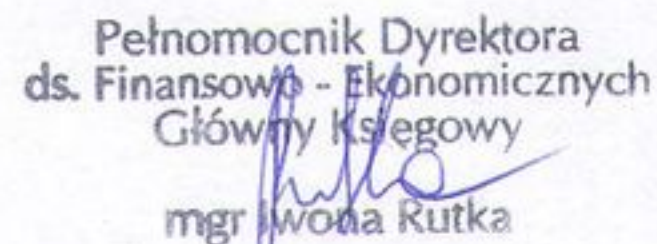 Pełnomocnik Dyrektora
ds. Finansowo - Ekonomicznych
Główny Księgowy
mgr Iwona Rutka